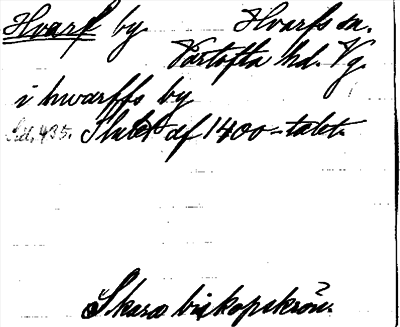 Hvarf by. Hvarfs sn.
Vartofta hd. Vg.
i hwarffs by
Sid. 435. Slutet af 1400-talet.
Skara biskopskrön.